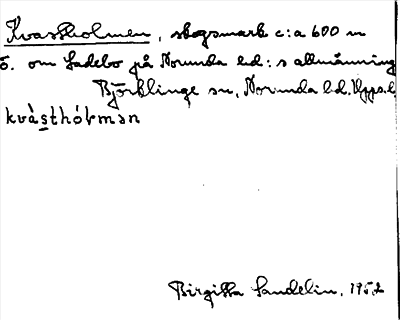 Kvastholmen, skogsmark c:a 600 m
ö. om Ladebo på Norunda hd:s allmänning
Björklinge sn, Norunda hd. Upps. l.
kvàsthól̀mən
Birgitta Sandelin, 1952